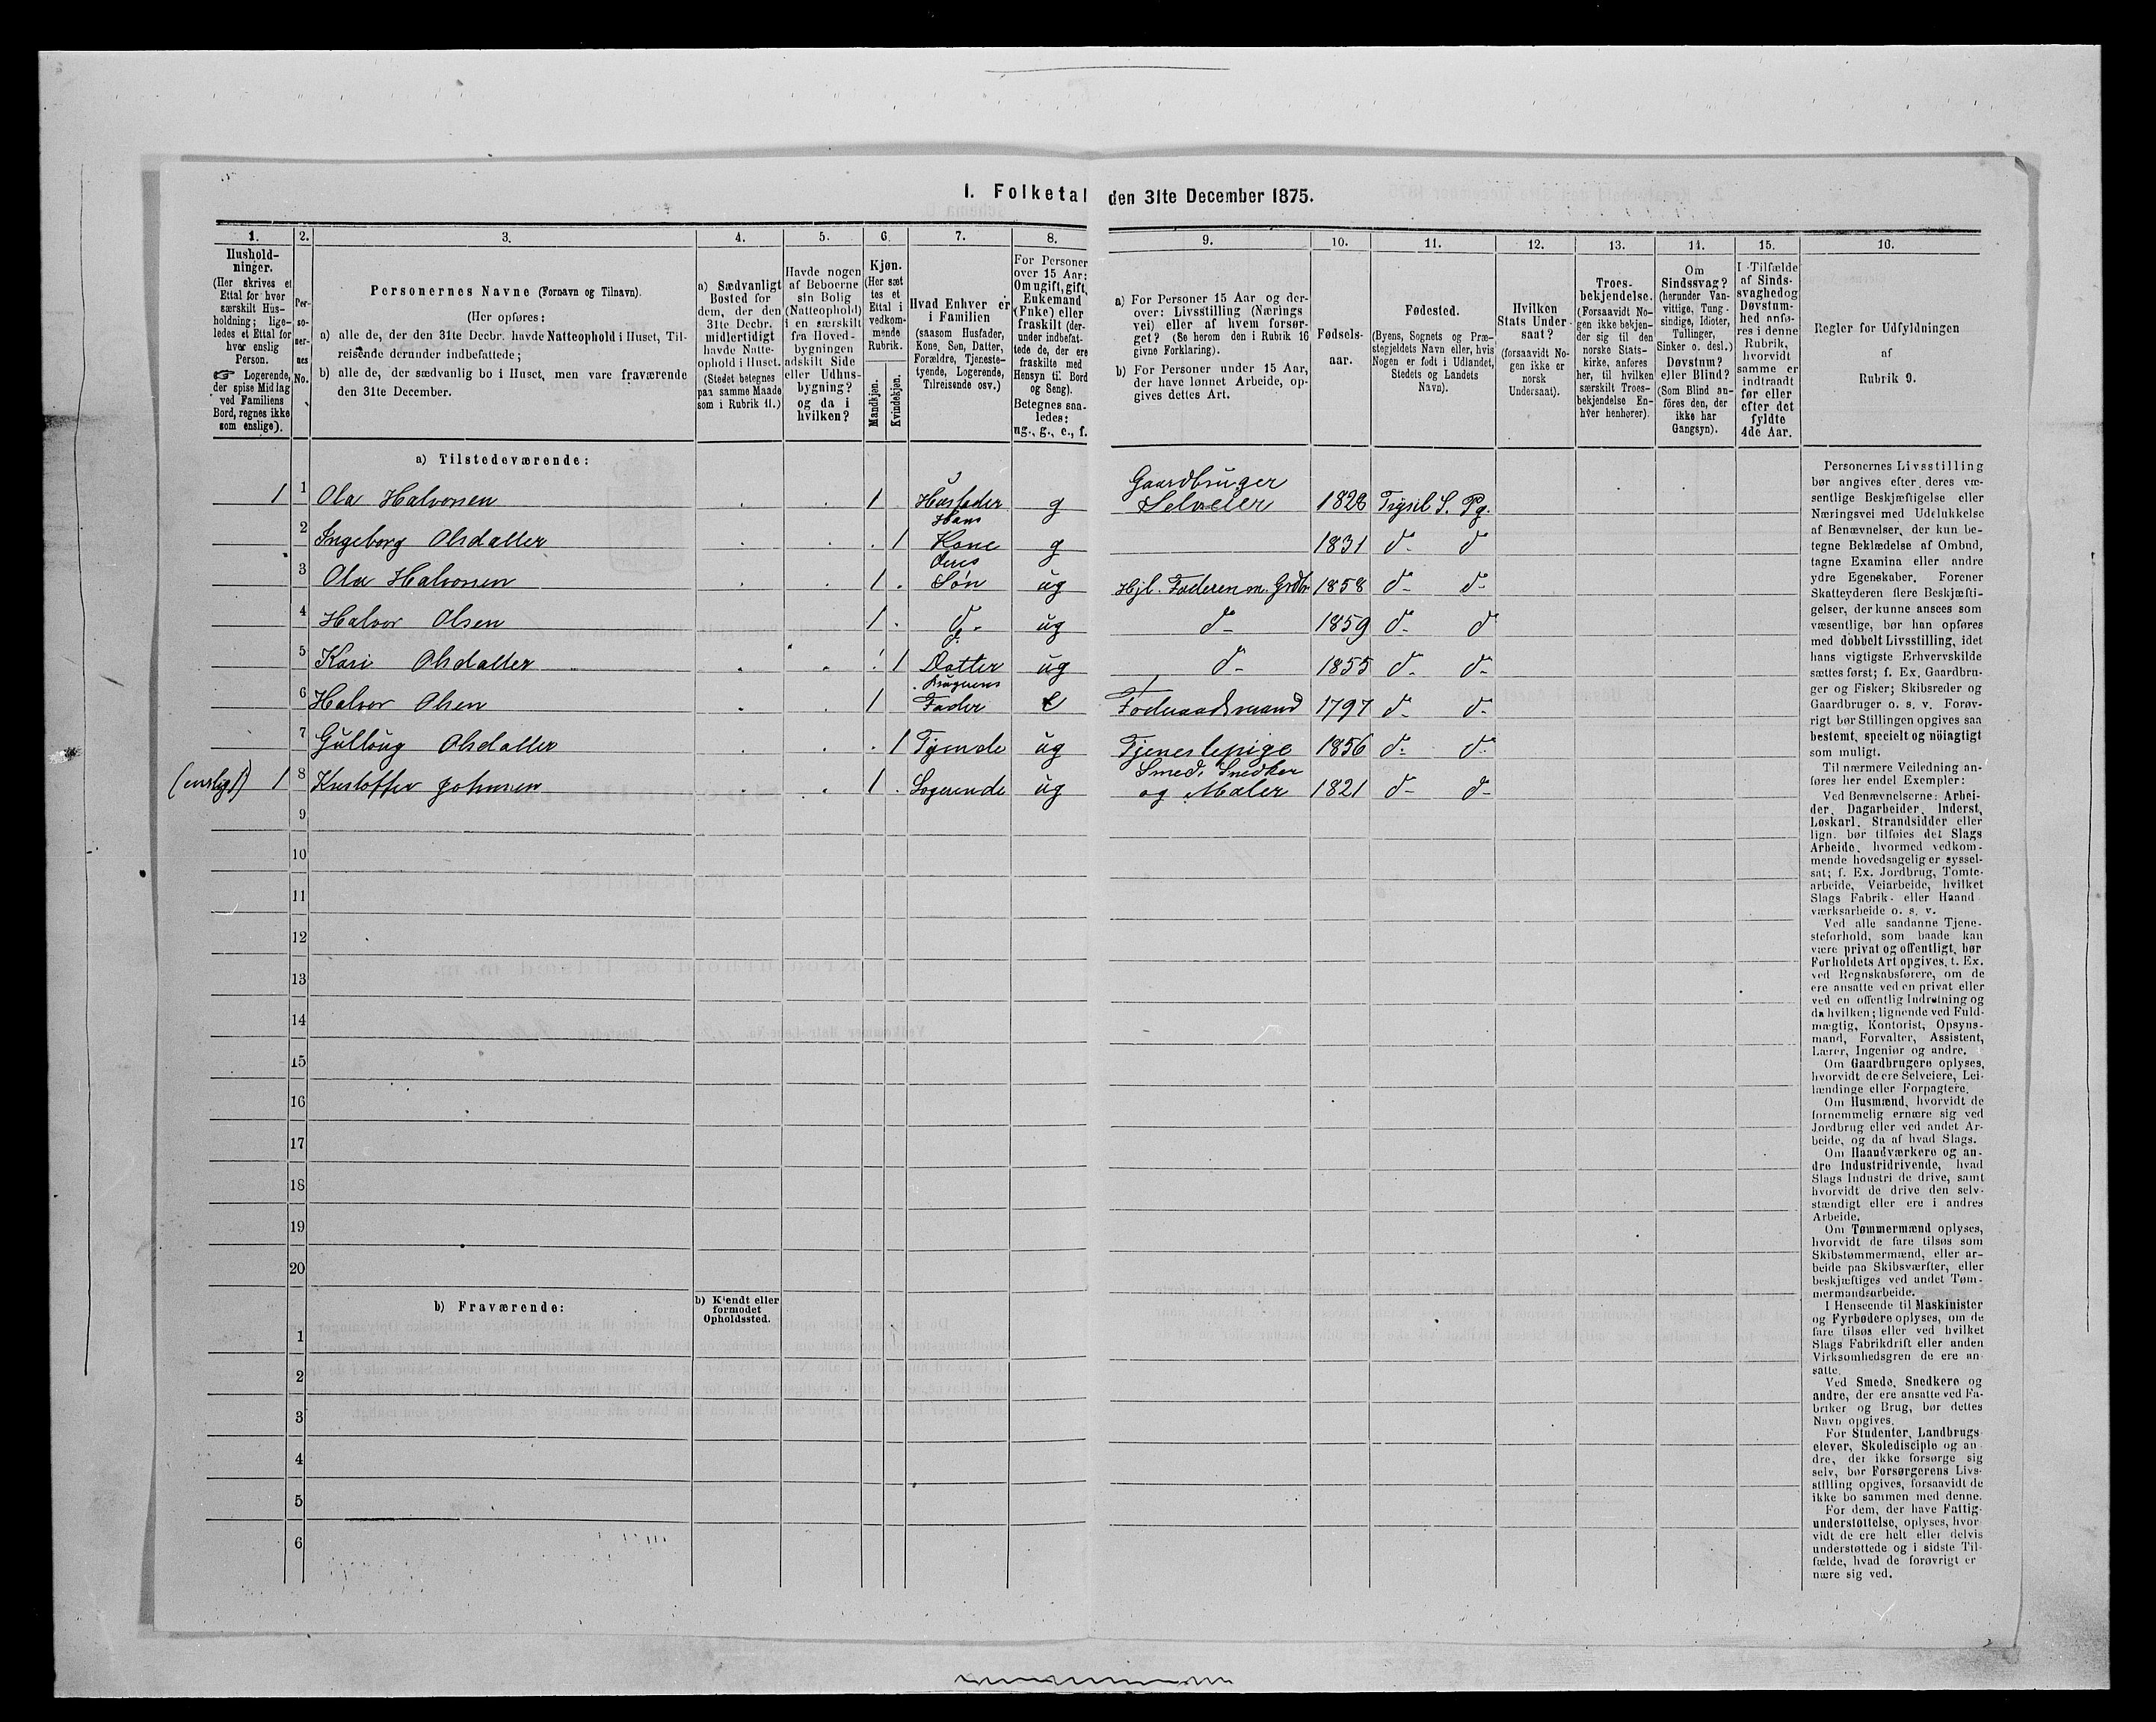 I. Folketal den 31te December 1875.
1. 2. 3. 4. 5. 6. 7. 8. 9. 10. 11. 12. 13. 14. 15. 16.
Hushold-
ninger.
(Her skrives et
Ettal for hver
særskilt Hus-
holdning; lige-
ledes et Ettal for
hver enslig
Person.
☞ Logerende,
der spise Middag
ved Familiens
Bord, regnes ikke
som enslige).
Per-
so-
ner-
nes
No.
Personernes Navne (Fornavn og Tilnavn).
(Her opføres:
a) alle de, der den 31te Decbr. havde Natteophold i Huset, Til-
reisende derunder indbefattede;
b) alle de, der sædvanlig bo i Huset, men vare fraværende
den 31te December.
a) Sædvanligt
Bosted for
dem, der den
31te Decbr.
midlertidigt
havde Natte-
ophold i Huset.
(Stedet betegnes
paa samme Maade
som i Rubrik 11.)
Havde nogen
af Beboerne
sin Bolig
(Natteophold)
i en særskilt
fra Hoved-
bygningen
adskilt Side
eller Udhus-
bygning?
og da i
hvilken?
Kjøn.
(Her sæt
tes et
Ettal i
vedkom-
mende
Rubrik.
Mandkjøn.
Kvindekjøn.
Hvad Enhver er
i Familien
(saasom Husfader,
Kone, Søn, Datter,
Forældre, Tjeneste-
tyende, Logerende,
Tilreisende osv.)
For Personer
over 15 Aar:
Om ugift, gift,
Enkemand
(Enke) eller
fraskilt (der-
under indbefat-
tede de, der ere
fraskilte med
Hensyn til Bord
og Seng).
Betegnes saa-
ledes:
ug., g., e., f.
a) For Personer 15 Aar og der-
over: Livsstilling (Nærings
vei) eller af hvem forsør-
get? (Se herom den i Rubrik 16
givne Forklaring).
b) For Personer under 15 Aar,
der have lønnet Arbeide, op-
gives dettes Art.
Fødsels-
aar.
Fødested.
(Byens, Sognets og Præ-
stegjeldets Navn eller, hvis
Nogen er født i Udlandet,
Stedets og Landets
Navn).
Hvilken
Stats Under-
saat?
(forsaavidt No-
gen ikke er
norsk
Undersaat).
Troes-
bekjendelse.
(Forsaavidt No-
gen ikke bekjen-
der sig til den
norske Stats-
kirke, anføres
her, til hvilken
særskilt Troes-
bekjendelse En-
hver henhører).
Om
Sindssvag?
(herunder Van-
vittige, Tung-
sindige, Idioter,
Tullinger,
Sinker o. desl.)
Døvstum?
eller Blind?
(Som Blind an-
føres den, der
ikke har
Gangsyn).
I Tilfælde
af Sinds-
svaghed og
Døvstum-
hed anfø-
res i denne
Rubrik,
hvorvidt
samme er
indtraadt
før eller
efter det
fyldte
4de Aar.
Regler for Udfyldningen
af
Rubrik 9.
a) Tilstedeværende:
1 1 Ola Halvorsen 1 Husfader g Gaardbruger Selveier 1828 Trysil S. Pg.
2 Ingeborg Olsdatter 1 Hans Kone g 1831 d- d
3 Ola Halvorsen 1 deres Søn ug Hjl. Faderen m. Grdbr 1858 d- d-
4 Halvor Olsen 1 d- ug d- 1859 d- d
5 Kari Olsdatter 1 d. Datter ug d- 1855 d- d-
6 Halvor Olsen 1 Brugerens Fader e Føderaadsmand 1797 d- d-
7 Gulloug Olsdatter 1 Tyende ug Tjenestepige 1856 d- d-
(enslig!) 1 8 Kristoffer Johnsen 1 Logerende ug Smed, Snedker og Maler 1821 d- d-
9
10
11
12
13
14
15
16
17
18
19
20
b) Fraværende:
b) Kjendt eller
formodet
Opholdssted.
1
2
3
4
5
6
Personernes Livsstilling
bør angives efter deres væ-
sentlige Beskjæftigelse eller
Næringsvei med Udelukkelse
af Benævnelser, der kun be-
tegne Beklædelse af Ombud,
tagne Examina eller andre
ydre Egenskaber. Forener
Skatteyderen flere Beskjæfti-
gelser, der kunne ansees som
væsentlige, bør han opføres
med dobbelt Livsstilling, idet
hans vigtigste Erhvervskilde
sættes først; f. Ex. Gaardbru-
ger og Fisker; Skibsreder og
Gaardbruger o. s. v. Forøv-
rigt bør Stillingen opgives saa
bestemt, specielt og nöiagtigt
som muligt.
Til nærmere Veiledning an-
føres her endel Exempler:
Ved Benævnelserne: Arbei-
der, Dagarbeider, Inderst,
Løskarl, Strandsidder eller
lign. bør tilføies det Slags
Arbeide, hvormed vedkom-
mende hovedsagelig er syssel-
sat; f. Ex. Jordbrug, Tomte-
arbeide, Veiarbeide, hvilket
Slags Fabrik- eller Haand
værksarbeide o. s. v.
Ved alle saadanne Tjene-
steforhold, som baade kan
være privat og offentligt, bør
Forholdets Art opgives, t. Ex.
ved Regnskabsførere, om de
ere ansatte ved en privat eller
ved en offentlig Indretning og
da hvilken; lignende ved Fuld-
mægtig, Kontorist, Opsyns-
mand, Forvalter, Assistent,
Lærer, Ingeniør og andre.
Om Gaardbrugere oplyses,
hvorvidt de ere Selveiere, Lei-
lændinge eller Forpagtere.
Om Husmænd, hvorvidt de
fornemmelig ernære sig ved
Jordbrug eller ved andet Ar-
beide, og da af hvad Slags.
Om Haandværkere og an-
dre Industridrivende, hvad
Slags Industri de drive, samt
hvorvidt de drive den selv-
stændigt eller ere i andres
Arbeide.
Om Tømmermænd oplyses,
hvorvidt de fare tilsøs som
Skibstømmermænd, eller ar-
beide paa Skibsværfter, eller
beskjæftiges ved andet Tøm-
mermandsarbeide.
I Henseende til Maskinister
og Fyrbødere oplyses, om de
fare tilsøs eller ved hvilket
Slags Fabrikdrift eller anden
Virksomhedsgren de ere an-
satte.
Ved Smede, Snedkere og
andre, der ere ansatte ved Fa-
briker og Brug, bør dettes
Navn opgives.
For Studenter, Landbrugs
elever, Skoledisciple og an
dre, der ikke forsørge sig
selv, bør Forsørgerens Livs-
stilling opgives, forsaavidt de
ikke bo sammen med denne.
For dem, der have Fattig-
understøttelse, oplyses, hvor-
vidt de ere helt eller delvis
understøttede og i sidste Til-
fælde, hvad de forøvrigt er
nære sig ved.